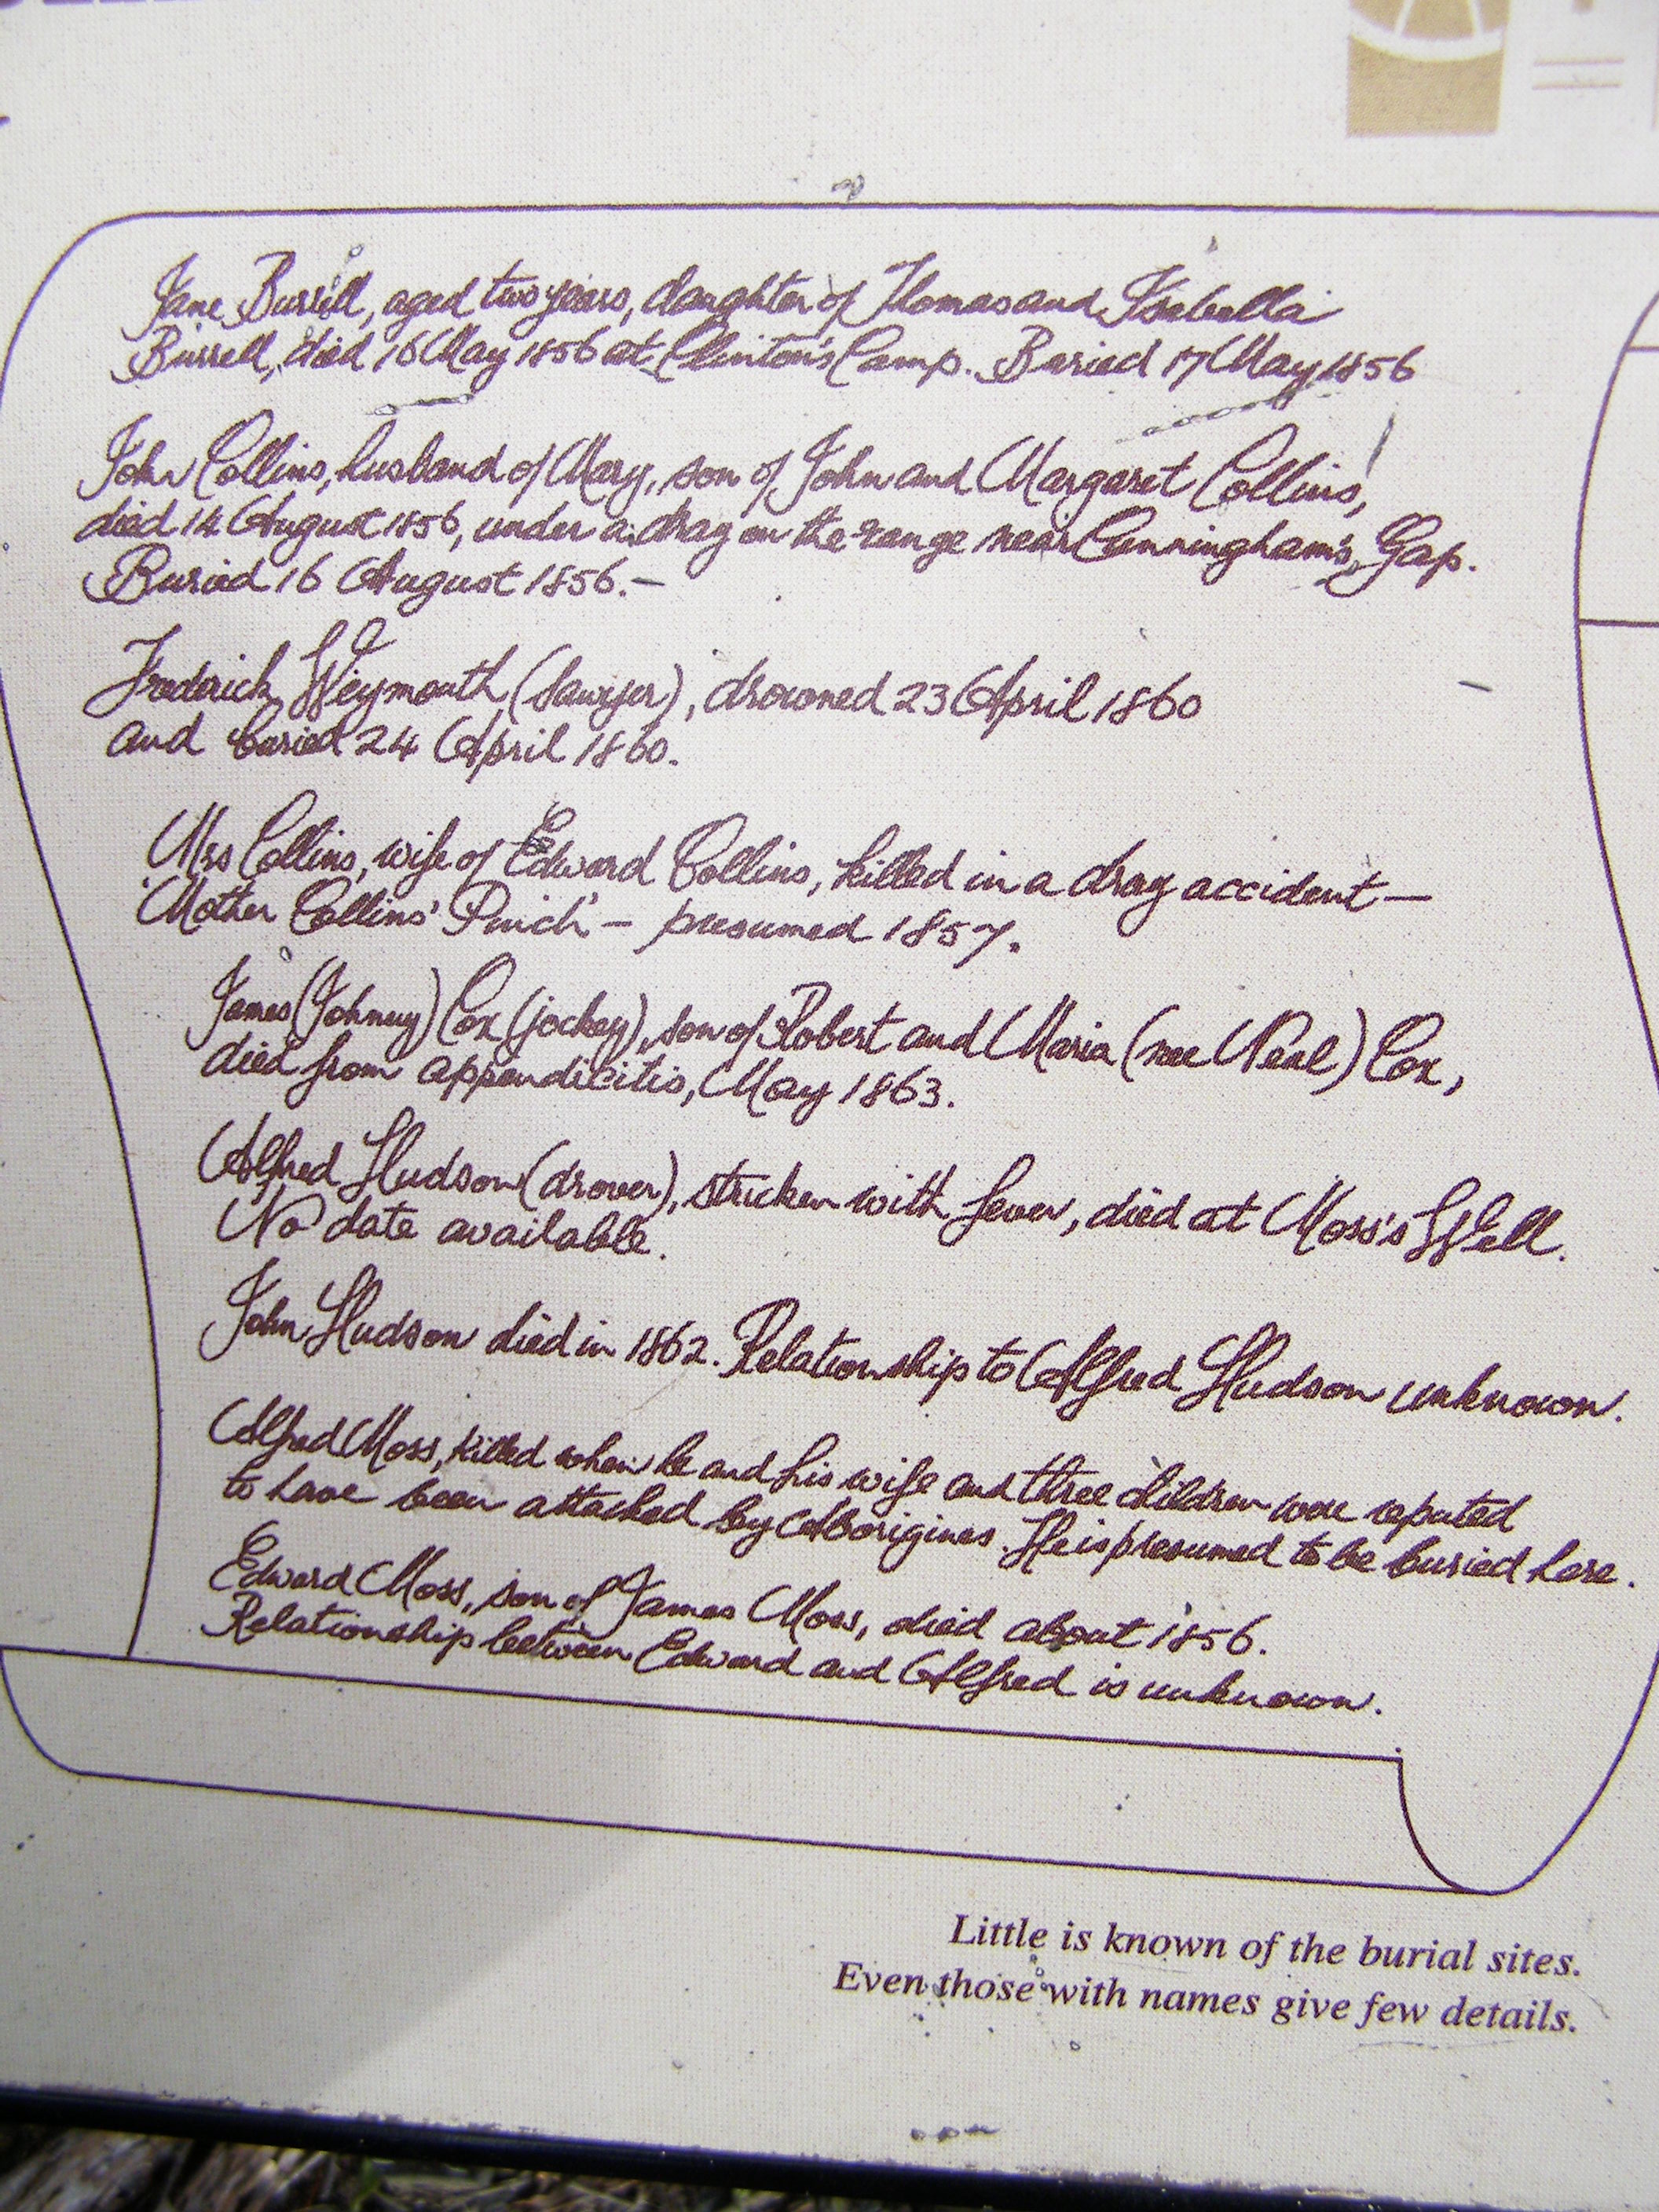 Jane Burrell, aged two years, daughter of Thomas and Isabella
Burrell, died 16 May 1856 at Clinton's Camp. Buried 17 May 1856
John Collins, husband of Mary, son of John and Margaret Collins,
died 14 August 1856, under a drag on the range near Cunningham's Gap.
Buried 16 August 1856.
Frederick Weymouth (Sawyer), drowned 23 April 1860
and buried 24 April 1860.
Mrs Collins, wife of Edward Collins, killed in a drag accident —
'Mother Collins' Pinch' — presumed 1857.
James (Johnny) Cox (jockey), son of Robert and Maria (nee Neal) Cox,
died from appendicitis, May 1863.
Alfred Hudson (drover), stricken with fever, died at Moss's Well.
No date available.
John Hudson died in 1862. Relationship to Alfred Hudson unknown.
Alfred Moss, killed when he and his wife and three children were reputed
to have been attacked by Aborigines. He is presumed to be buried here.
Edward Moss, son of James Moss, died about 1856.
Relationship between Edward and Alfred is unknown.
Little is known of the burial sites.
Even those with names give few details.